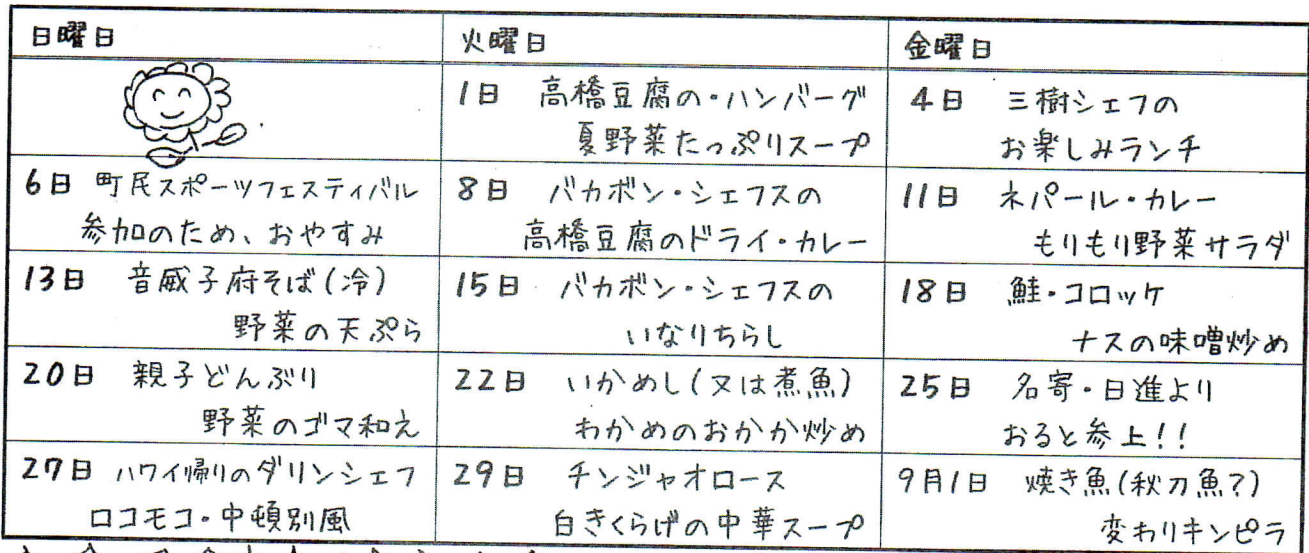 日曜日
火曜日
金曜日
1日 高橋豆腐の・ハンバーグ
夏野菜たっぷりスープ
4日 三樹シェフの
お楽しみランチ
6日 町民スポーツフェスティバル
参加のため、おやすみ
8日 バカボン・シェフスの
高橋豆腐のドライ・カレー
11日 ネパール・カレー
もりもり野菜サラダ
13日 音威子府そば(冷)
野菜の天ぷら
15日 バカボン・シェフスの
いなりちらし
18日 鮭・コロッケ
ナスの味噌炒め
20日 親子どんぶり
野菜のゴマ和え
22日 いかめし(又は煮魚)
わかめのおかか炒め
25日 名寄・日進より
おると参上!!
27日 ハワイ帰りのダリンシェフ
ロコモコ・中頓別風
29日 チンジャオロース
白きくらげの中華スープ
9月1日 焼き魚(秋刀魚?)
変わりキンピラ